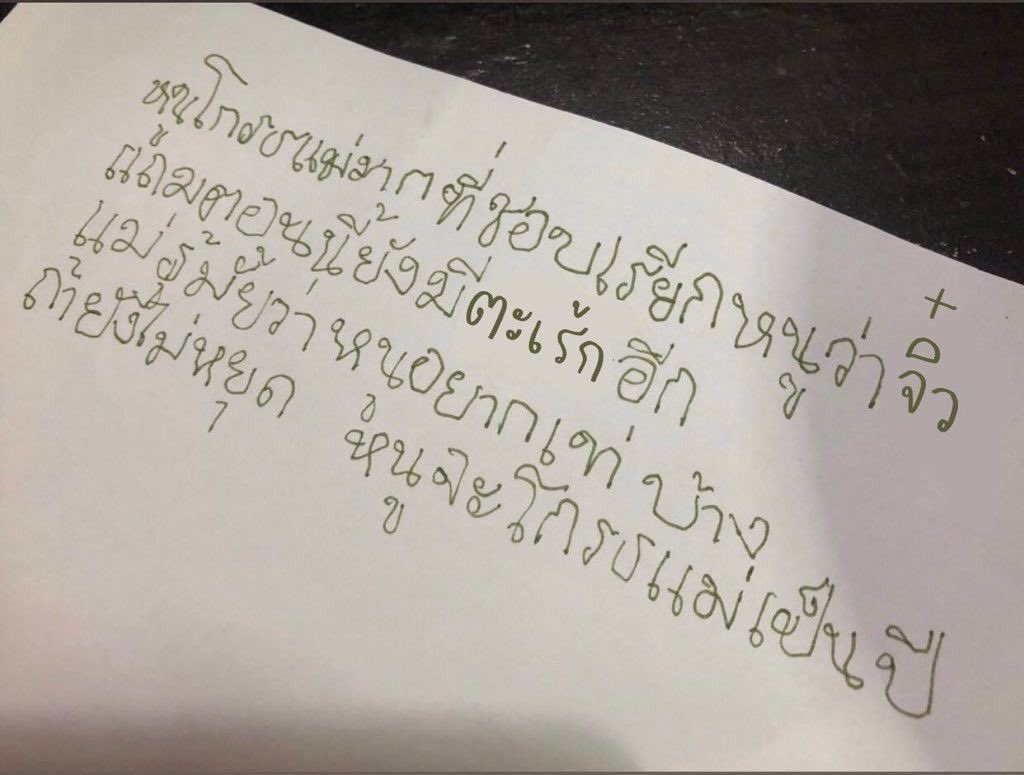 หนูโกรธแม่มากที่ชอบเรียกหนูว่าจิ๋ว
แถมตอนนี้ยังมีตะเร้กอีก
แม่รู้มั้ยว่าหนูอยากเท่ บ้าง
ถ้ายังไม่หยุด หนูจะโกรธแม่เป็นปี